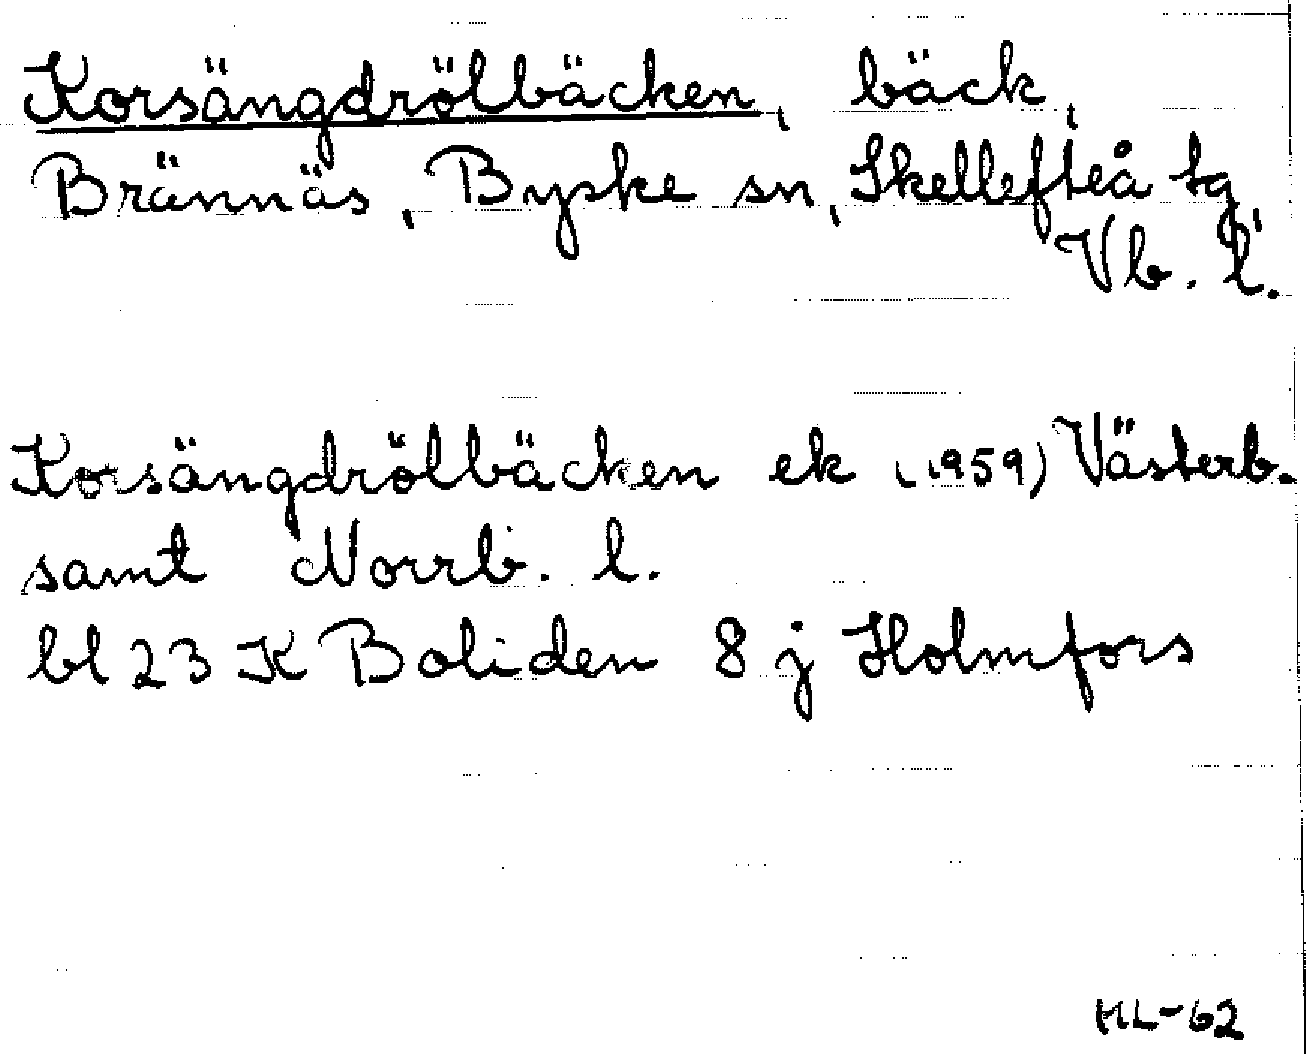 Korsängdrölbäcken, bäck,
Brännäs, Byske sn, Skellefteå tg,
Vb. l.
Korsängdrölbäcken ek (1959) Västerb.
samt Norrb. l.
bl 23 K Boliden 8 j Holmfors
HL-62